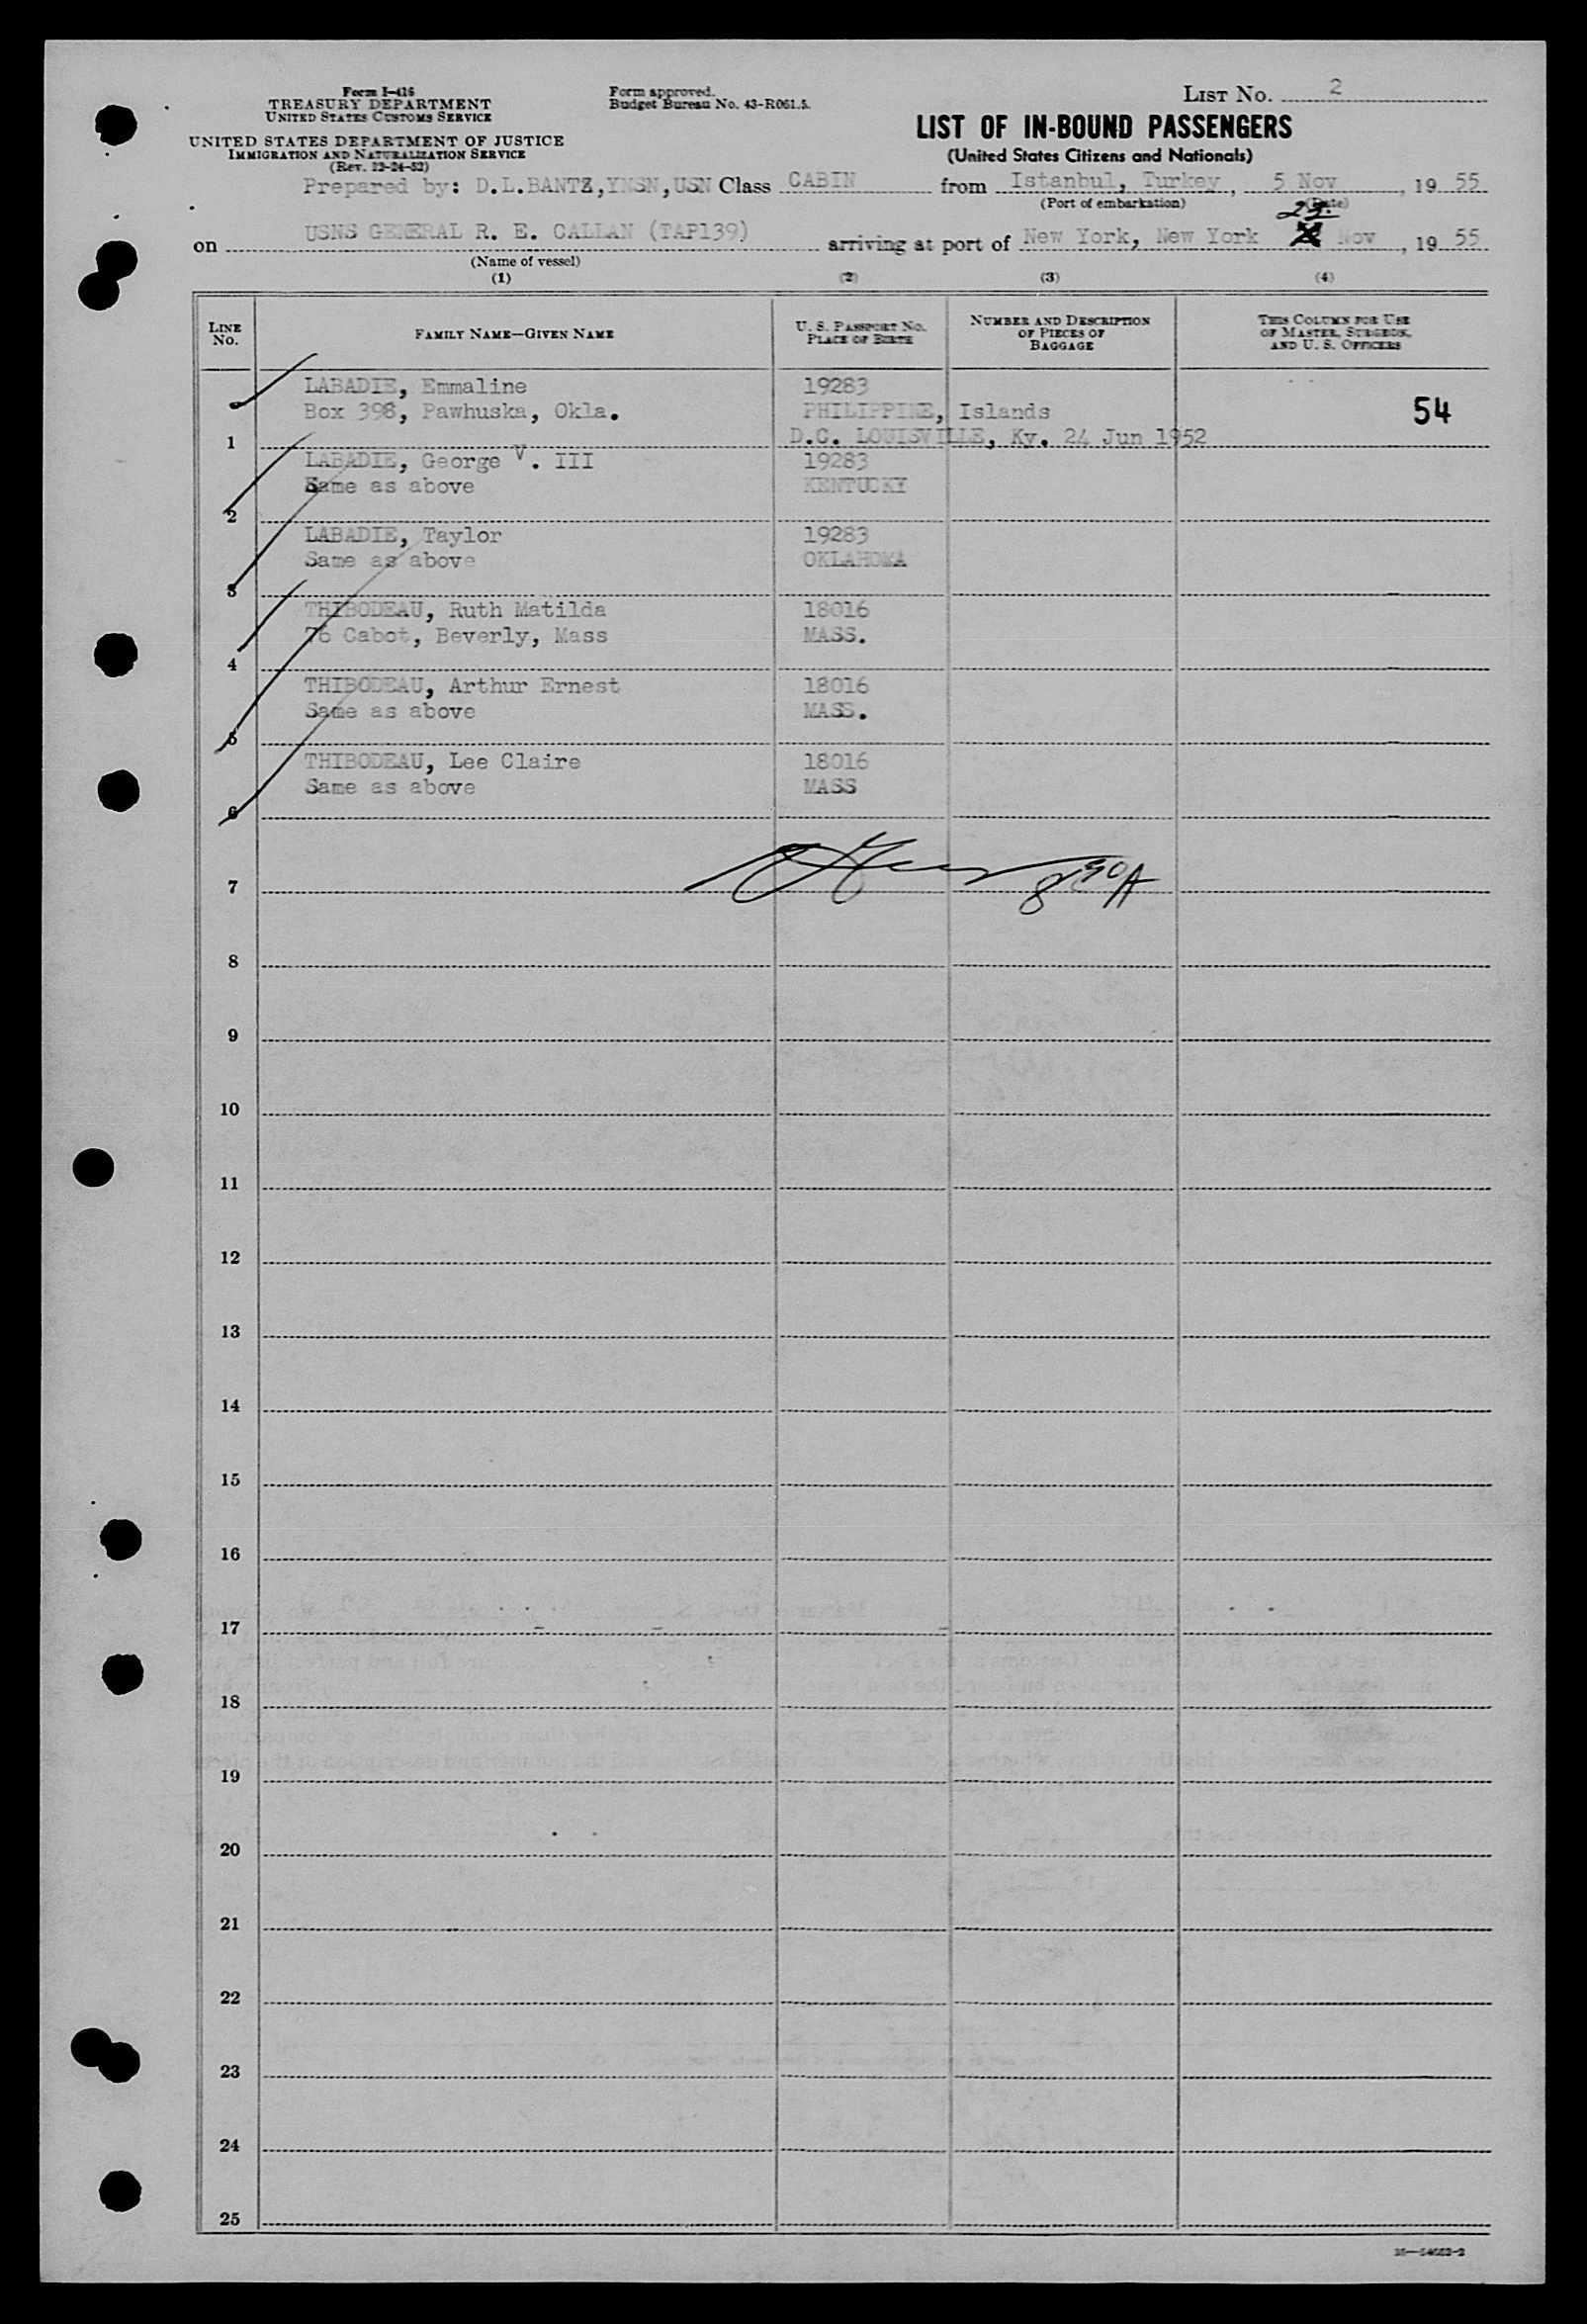 Form I-416
TREASURY DEPARTMENT
UNITED STATES CUSTOMS SERVICE
UNITED STATES DEPARTMENT OF JUSTICE
IMMIGRATION AND NATURALIZATION SERVICE
(Rev. 12-24-52)
Form approved.
Budget Bureau No. 43-R061.5.
LIST NO. 2
LIST OF IN-BOUND PASSENGERS
(United States Citizens and Nationals)
Prepared by: D.L.BANTZ,YNSN,USN Class CABIN from Istanbul, Turkey, 5 Nov, 19 55
(Port of embarkation) (Date)
23.
on USNS GENERAL R. E. CALLAN (TAP139) arriving at port of New York, New York Nov, 19 55
(Name of vessel)
(1) (2) (3) (4)
LINE NO. FAMILY NAME—GIVEN NAME U. S. PASSPORT NO. PLACE OF BIRTH NUMBER AND DESCRIPTION OF PIECES OF BAGGAGE THIS COLUMN FOR USE OF MASTER, SURGEON, AND U. S. OFFICERS
LABADIE, Emmaline 19283
Box 398, Pawhuska, Okla. PHILIPPINE, Islands 54
1 D.C. LOUISVILLE, Ky. 24 Jun 1952
LABADIE, George V. III 19283
Same as above KENTUCKY
2
LABADIE, Taylor 19283
Same as above OKLAHOMA
3
THIBODEAU, Ruth Matilda 18016
76 Cabot, Beverly, Mass MASS.
4
THIBODEAU, Arthur Ernest 18016
Same as above MASS.
5
THIBODEAU, Lee Claire 18016
Same as above MASS
6
7
8
9
10
11
12
13
14
15
16
17
18
19
20
21
22
23
24
25